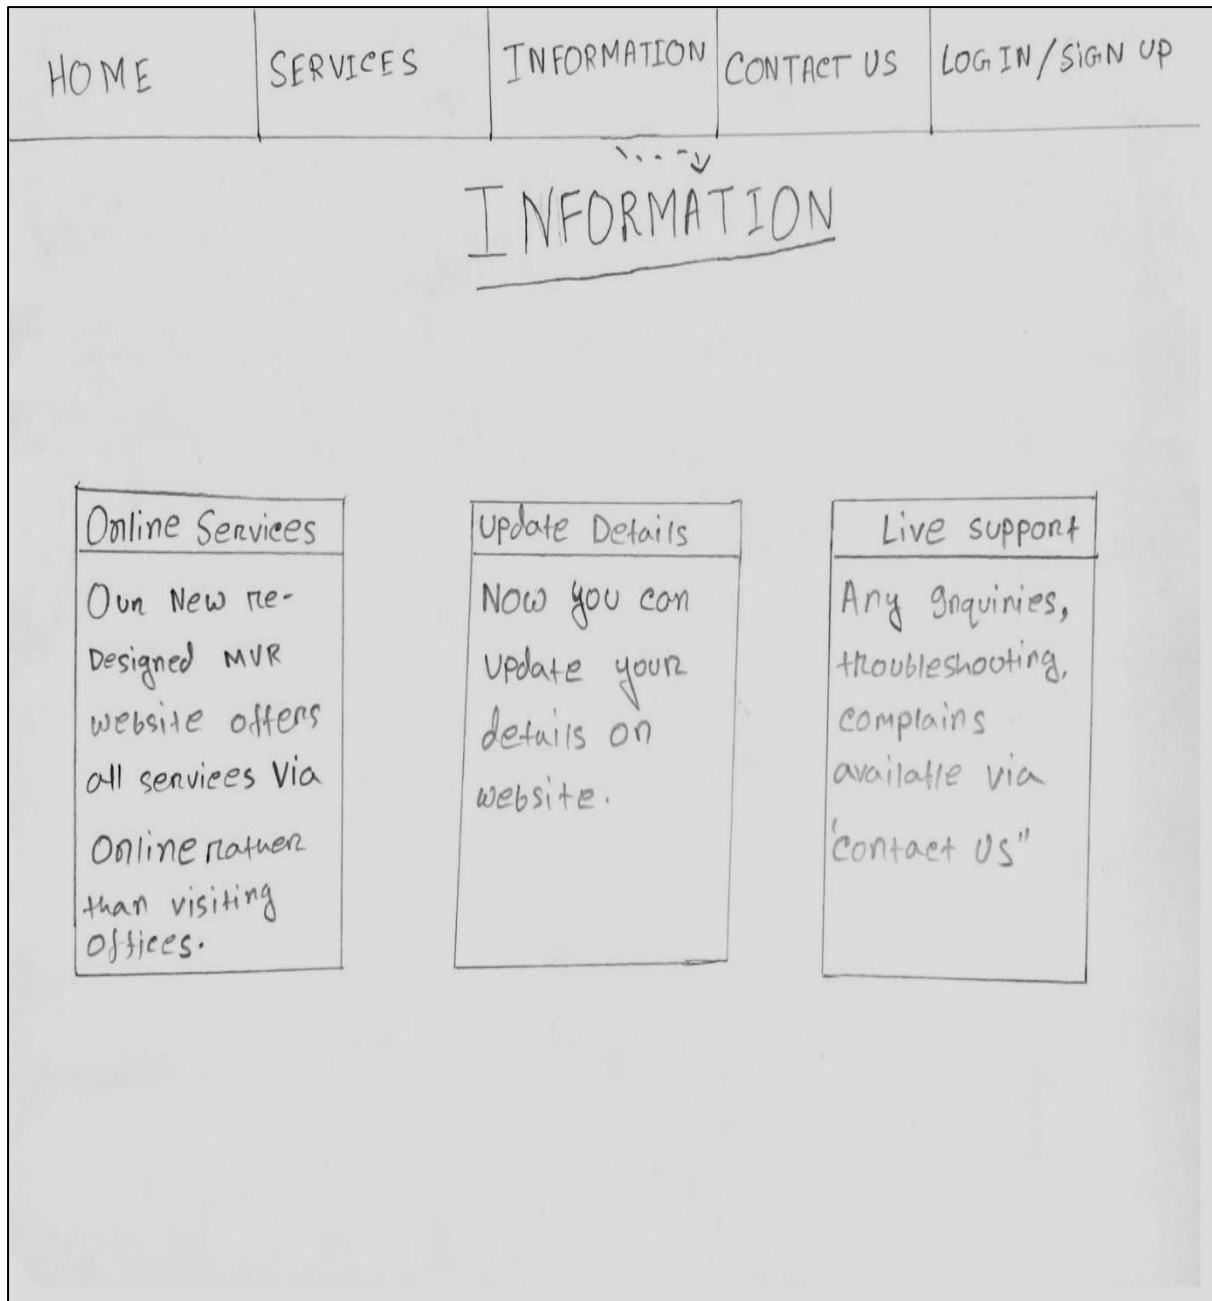 HOME SERVICES INFORMATION CONTACT US LOG IN/SIGN UP
INFORMATION
Online Services
Our New re-
Designed MVR
website offers
all services Via
Online rather
than visiting
offices.
Update Details
Now you can
update your
details on
website.
Live support
Any Inquiries,
troubleshooting,
complains
available via
"contact Us"